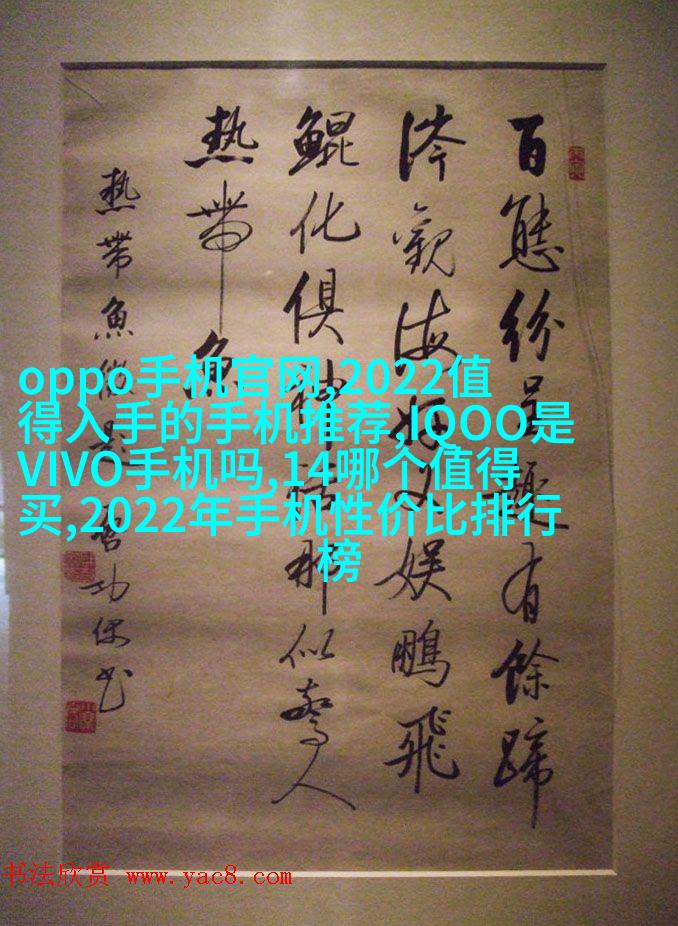 百態紛呈趣有餘蹄
涔觀海以娱鵬飛
鯤化俱神話那似驚人
熱帶魚
熱帶魚影啓功
oppo手机官网,2022值
得入手的手机推荐,IQOO是
VIVO手机吗,14哪个值得
买,2022年手机性价比排行
榜
书法欣赏 www.yac8.com